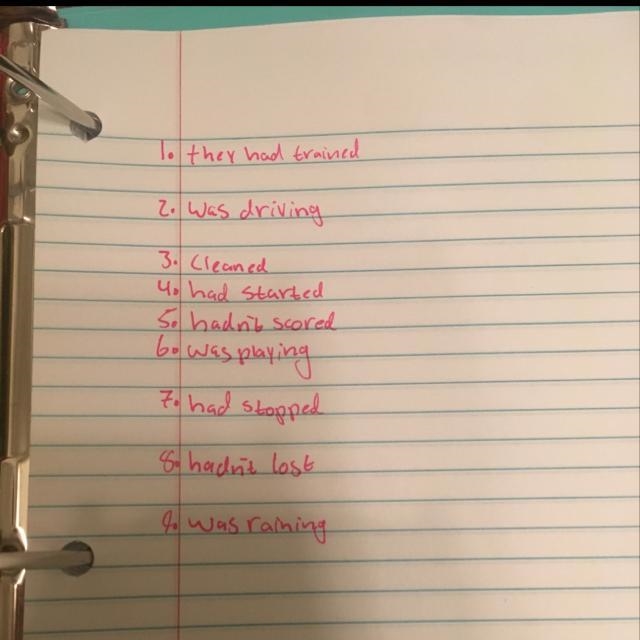 1. they had trained
2. was driving
3. cleaned
4. had started
5. hadn't scored
6. was playing
7. had stopped
8. hadn't lost
9. was raining